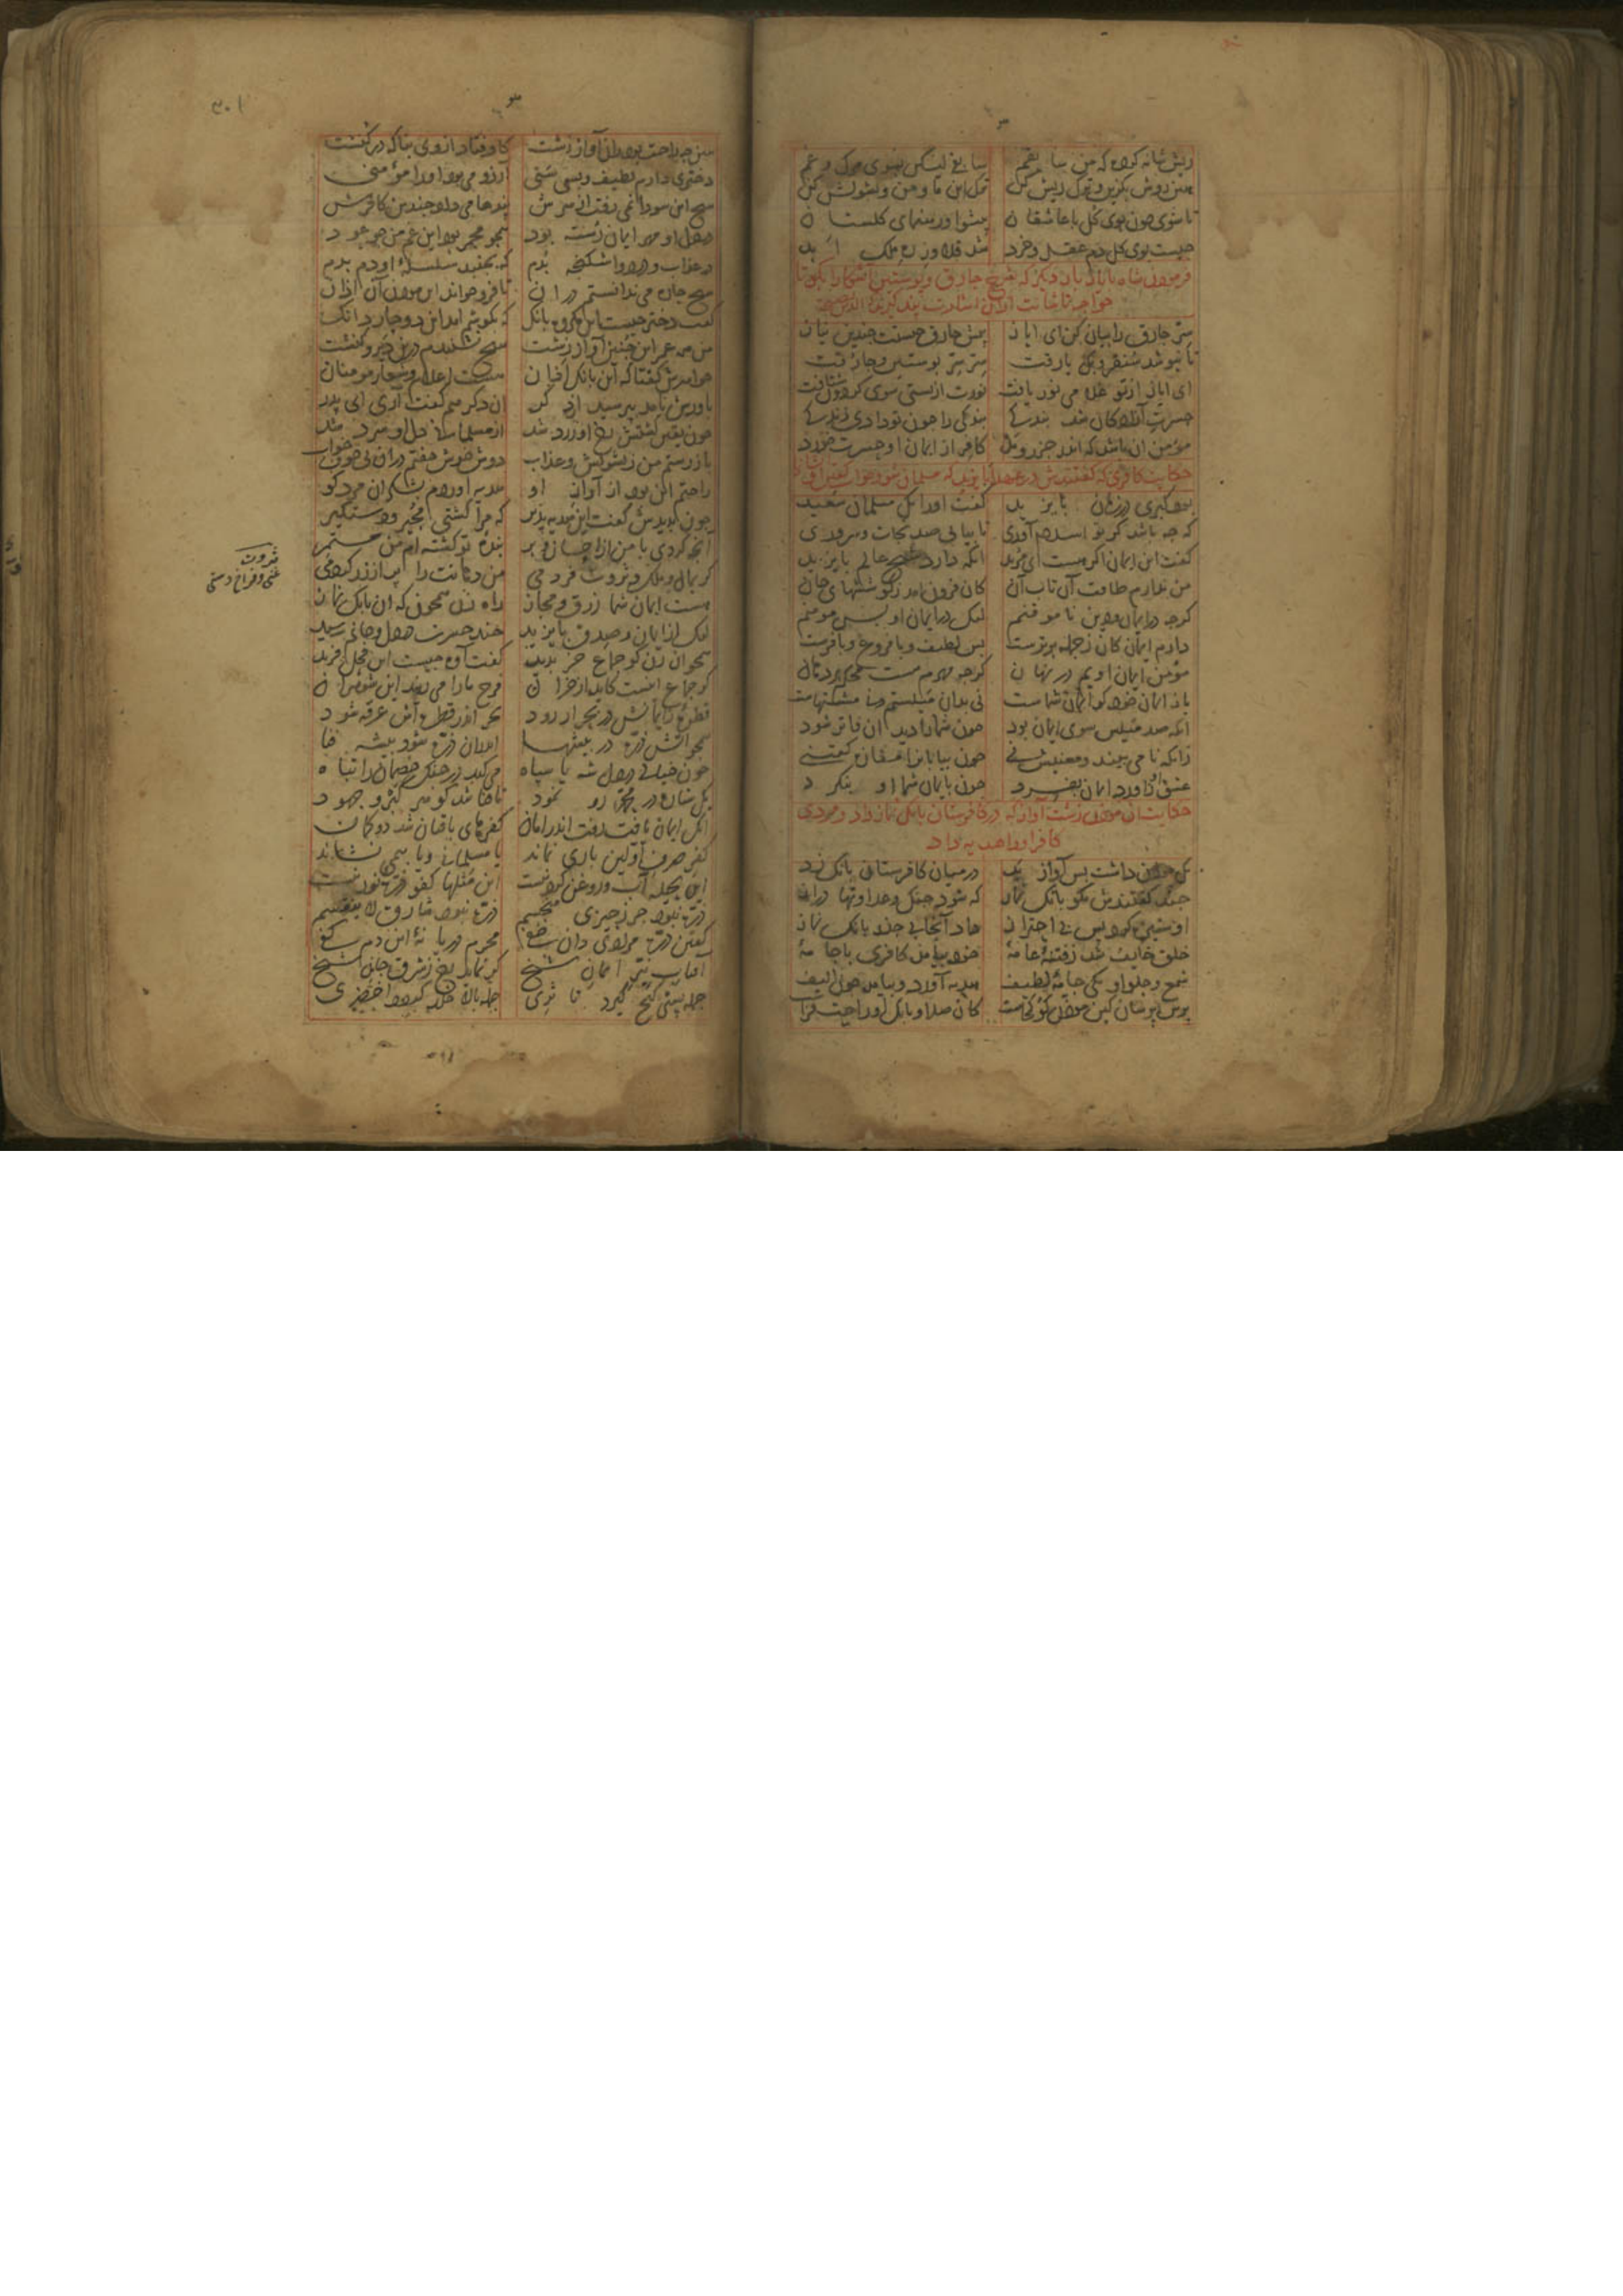 ریش شانه کرده که من سابقم سابقی لیکن بسوی مرک و غم
هین روش بکزین و ترک ریش کن ترک این ما و من و تشویش کن
تا شوی چون بوی کل با عاشقان پیشوا و رهنمای کلستان
چیست بوی کل دم عقل و خرد شد قلاوز ره ملک ابد
فرمودن شاه بایاز بار دیکر که شرح چارق و پوستین آشکارا بکو تا
خواجه تاشانت ازان اشارت پند کیرند که الدین النصیحة
سر چارق را بیان کن ای ایاز پیش چارق چیست چندین نیاز
تا بنوشد سنقر و بکیارقت سر سر پوستین و چارقت
ای ایاز از تو غلامی نور یافت نورت از پستی سوی کردون شتافت
حسرت آزادکان شد بندکی بندکی را چون تو دادی زندکی
مؤمن آن باشد که اندر جزر و مد کافر از ایمان او حسرت خورد
حکایت کافری که کفتندش در عهد بایزید که مسلمان شو و جواب کفتن او
بود کبری در زمان بایزید کفت او را یک مسلمان سعید
که چه باشد کر تو اسلام آوری تا بیابی صد نجات و سروری
کفت این ایمان اکر هست ای مرید آنکه دارد شیخ عالم بایزید
من ندارم طاقت آن تاب آن کان فزون آمد ز کوششهای جان
کرچه در ایمان و دین ناموقنم لیک در ایمان او بس مومنم
دارم ایمان کان ز جمله برترست بس لطیف و با فروغ و با فرست
مؤمن ایمان اویم در نهان کرچه مهرم هست محکم بر دهان
باز ایمان خود کر ایمان شماست نی بدان میلستم و نی مشتهاست
آنکه صد میلش سوی ایمان بود چون شما را دید آن فاتر شود
زانکه نامی بیند و معنیش نی چون بیابان را مفازه کفتنی
عشق او زاورد ایمان بفسرد چون بایمان شما او بنکرد
حکایت آن مؤذن زشت آواز که در کافرستان بانک نماز داد و مردی
کافر او را هدیه داد
یک مؤذن داشت بس آواز بد در میان کافرستان بانک زد
چند کفتندش مکو بانک نماز که شود جنک و عداوتها دراز
او ستیزه کرد و پس بی احتراز داد آنجا بی جذر بانک نماز
خلق خایف شد ز فتنه عامه خود بیامد کافری با جامه
شمع و حلوا و یکی جامه لطیف هدیه آورد و بیامد چون الیف
پرس پرسان کین مؤذن کو کجاست که صلا و بانک او راحت فزاست
هین چه راحت بود زان آواز زشت کاو فتاد از وی بناکه در کنشت
دختری دارم لطیف و بس سنی آرزو می بود او را مؤمنی
هیچ این سودا نمی رفت از سرش پندها می داد چندین کافرش
در دل او مهر ایمان رسته بود همچو مجمر بود این غم من چو عود
در عذاب و درد و اشکنجه بدم که بجنبد سلسله او دم بدم
هیچ چاره می ندانستم دران تا فرو خواند این مؤذن آن اذان
کفت دختر چیست این مکروه بانک که بکوشم آمد این دو چار دانک
من همه عمر این چنین آواز زشت هیچ نشنیدم درین دیر و کنشت
خواهرش کفتا که این بانک اذان هست اعلام و شعار مومنان
باورش نامد بپرسید از دکر آن دکر هم کفت آری ای پدر
چون یقین کشتش رخ او زرد شد از مسلمانی دل او سرد شد
باز رستم من ز تشویش و عذاب دوش خوش خفتم دران بی خوف خواب
راحتم این بود از آواز او هدیه آوردم بشکر آن مرد کو
چون بدیدش کفت این هدیه پذیر که مرا کشتی مجیر و دستکیر
آنچه کردی با من از احسان و بر بنده تو کشته ام من مستمر
کر بمال و ملک و ثروت فردمی من دهانت را پر از زر کردمی
هست ایمان شما زرق و مجاز راه زن همچون که آن بانک نماز
لیک از ایمان و صدق بایزید چند حسرت در دل و جانم رسید
همچو آن زن کو جماع خر بدید کفت آوه چیست این فحل فرید
کر جماع اینست کاید از خران فرج ما را می رید این شوهران
قطره ز ایمانش در بحر ار رود بحر اندر قطره اش غرقه شود
همچو آتش ذره در بیشها اندر آن ذره شود بیشه فنا
چون خیالی در دل شه یا سپاه می کند در جنک خصمان را تباه
یک ستاره در محمد رو نمود تا فنا شد کوهر کبر و جهود
آنک ایمان یافت رفت اندر امان کفرهای باقیان شد دو کمان
کفر صرف اولین باری نماند یا مسلمانی و یا بیمی نشاند
این بحیله آب و روغن کردنیست این مثلها کفو ذره نور نیست
ذره نبود جز ز چیزی منجسم ذره نبود شارق لا ینقسم
کفتن ذره مرادی دان خفی محرم دریا نه این دم کفی
آفتاب نیر ایمان شیخ کر نماید رخ ز شرق جان شیخ
جمله پستی کنج کیرد تا ثری جمله بالا خلد کیرد اخضری
ثروت
غنی و فراخ دستی
۳۰۱